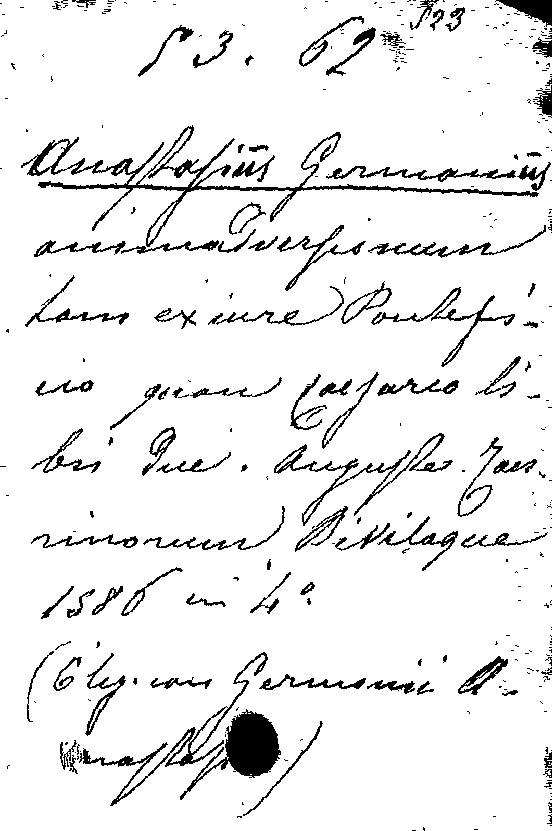 523
53. 62
Anastasius Germonius
animadversionum
tam ex iure Pontefi-
cio quam Caesareo li-
bri duo. Augustae Tau-
rinorum Bevilaque
1586 in 4°
(Olig. con Germonii A-
nastasi)